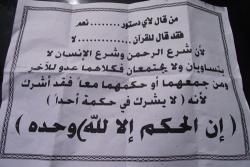 من قال لأي دستور ........ نعم
فقد قال للقرآن ............ لا
لأن شرع الرحمن وشرع الإنسان لا
يتساويان ولا يجتمعان فكلاهما عدو للآخر
ومن جمعهما أو حكمهما معاً فقد أشرك
لأنه ( لا يشرك في حكمة أحدا )
( إن الحكم إلا لله ) وحده )